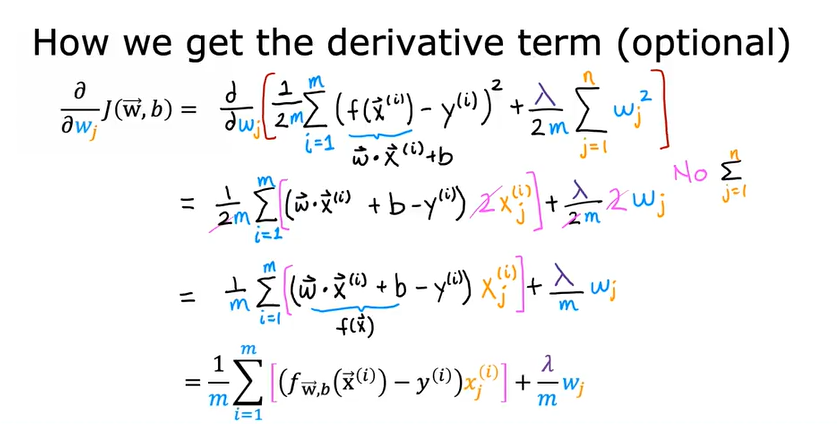 How we get the derivative term (optional)
∂/∂w_j J(w⃗, b) = d/dw_j [ 1/2m Σ_{i=1}^{m} (f(x⃗^(i)) - y^(i))^2 + λ/2m Σ_{j=1}^{n} w_j^2 ]
w⃗ · x⃗^(i) + b
= 1/2m Σ_{i=1}^{m} [ (w⃗ · x⃗^(i) + b - y^(i)) 2 x_j^(i) ] + λ/2m 2 w_j No Σ_{j=1}^{n}
= 1/m Σ_{i=1}^{m} [ (w⃗ · x⃗^(i) + b - y^(i)) x_j^(i) ] + λ/m w_j
f(x⃗)
= 1/m Σ_{i=1}^{m} [ (f_{w⃗,b}(x⃗^(i)) - y^(i)) x_j^(i) ] + λ/m w_j